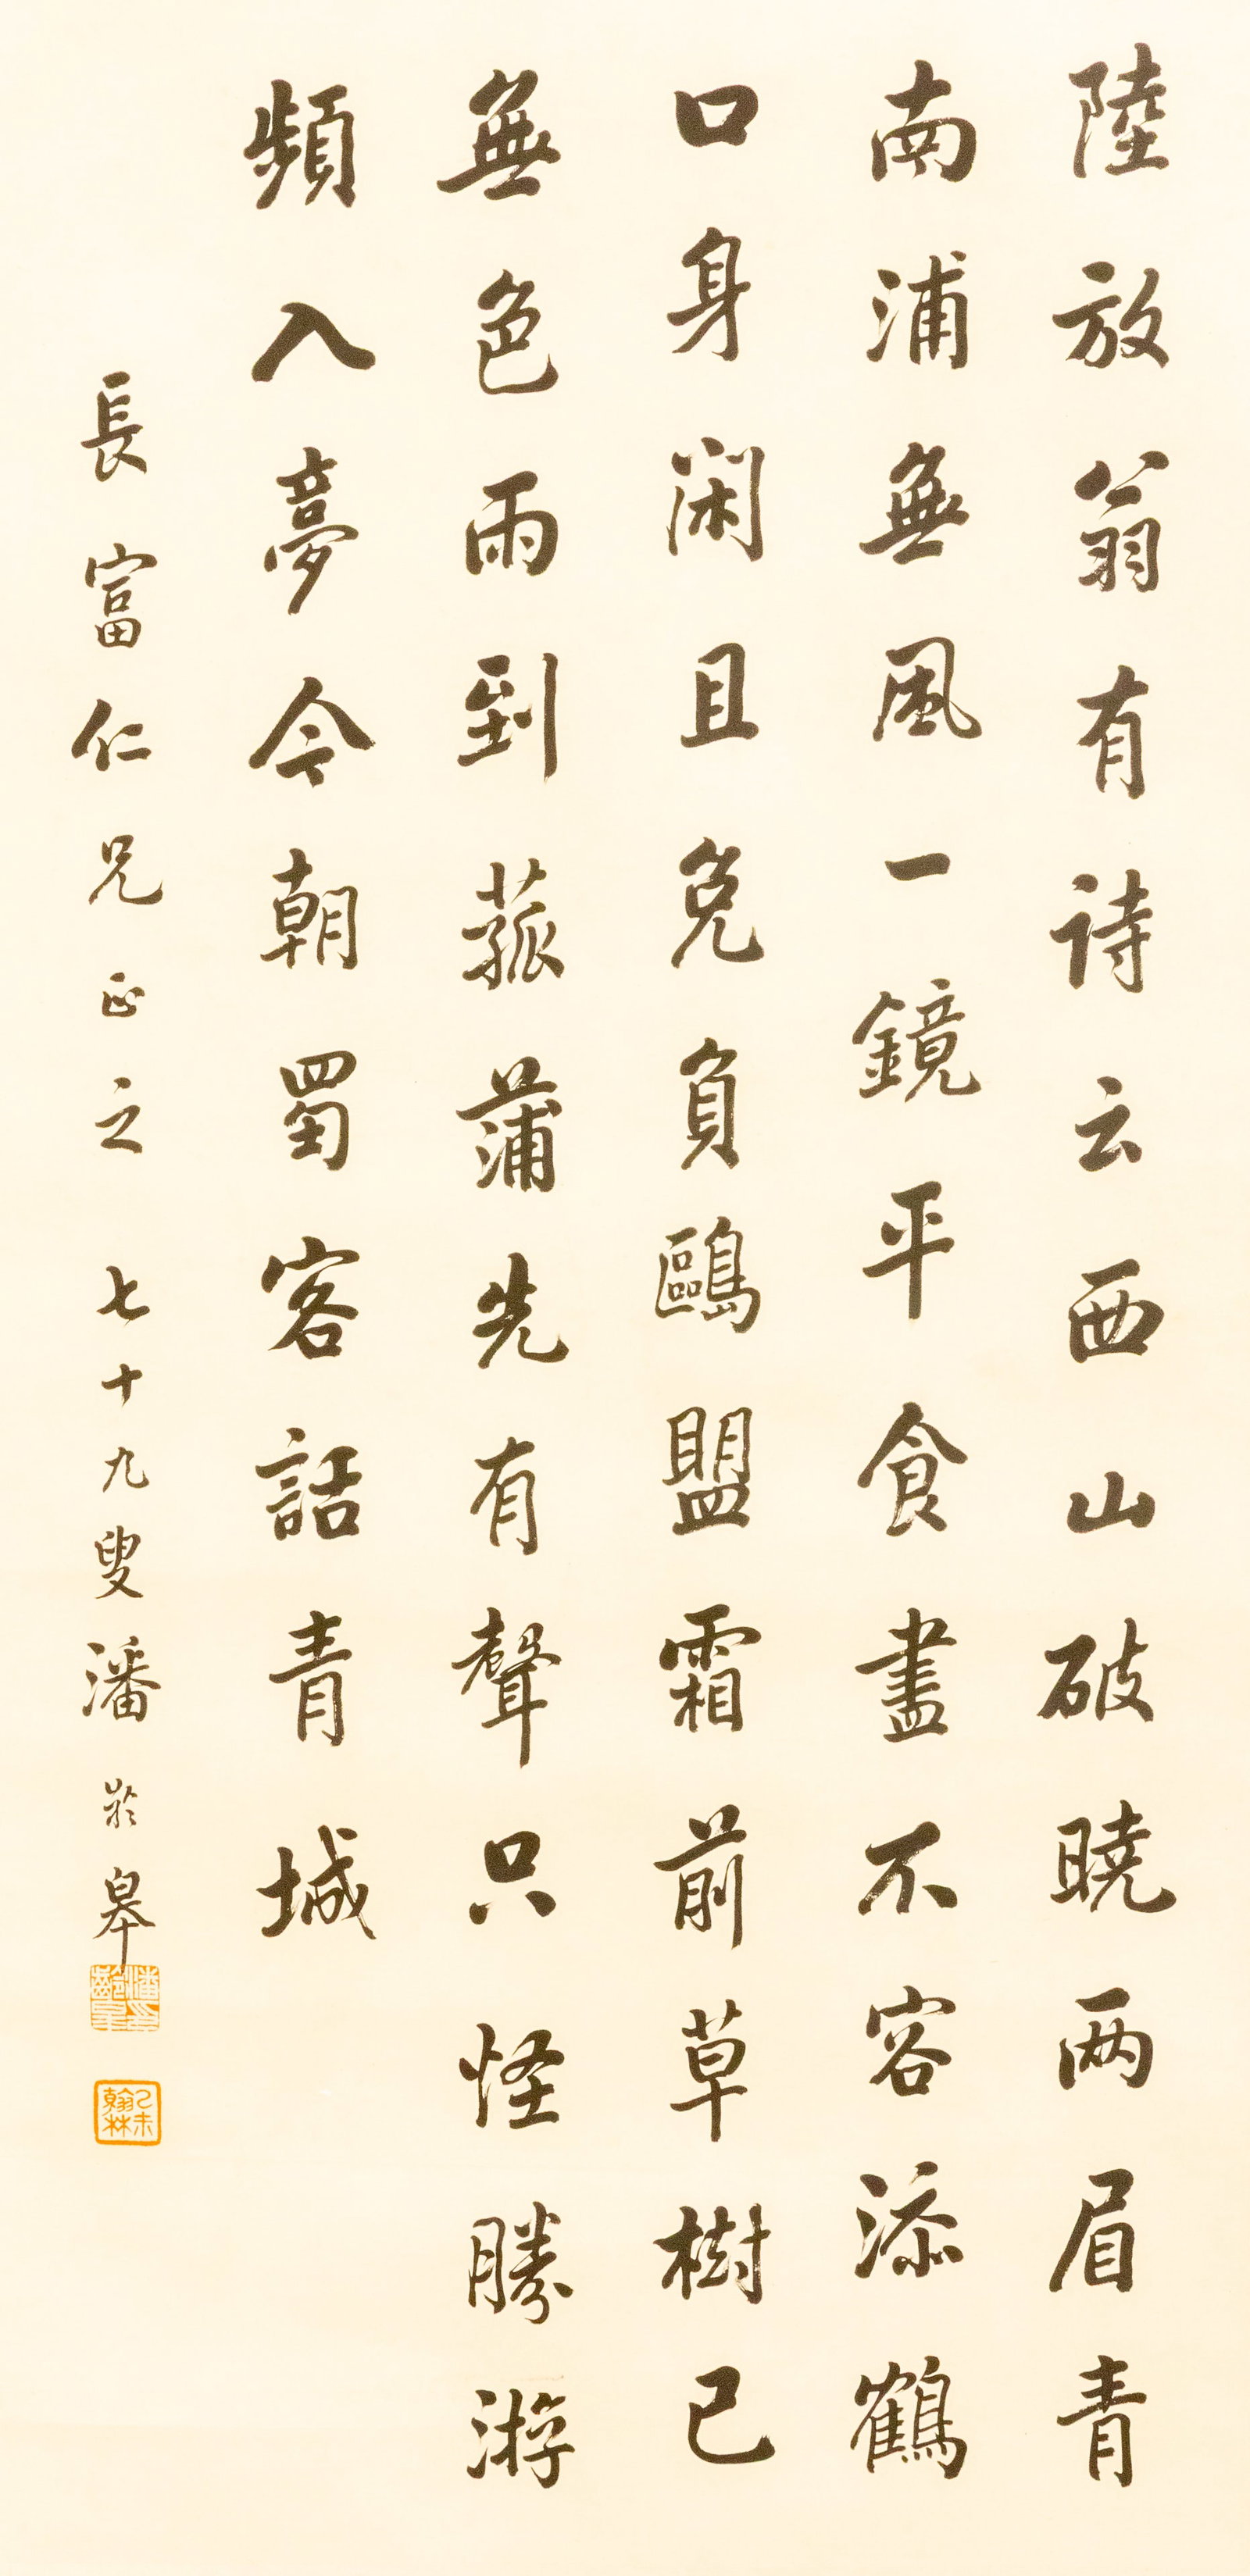 陸放翁有詩云西山破曉兩眉青
南浦無風一鏡平食盡不容添鶴
口身閑且免負鷗盟霜前草樹已
無色雨到菰蒲先有聲只怪勝游
頻入夢今朝蜀客話青城
長富仁兄正之 七十九叟潘齡皋
潘齡皋印
乙未翰林